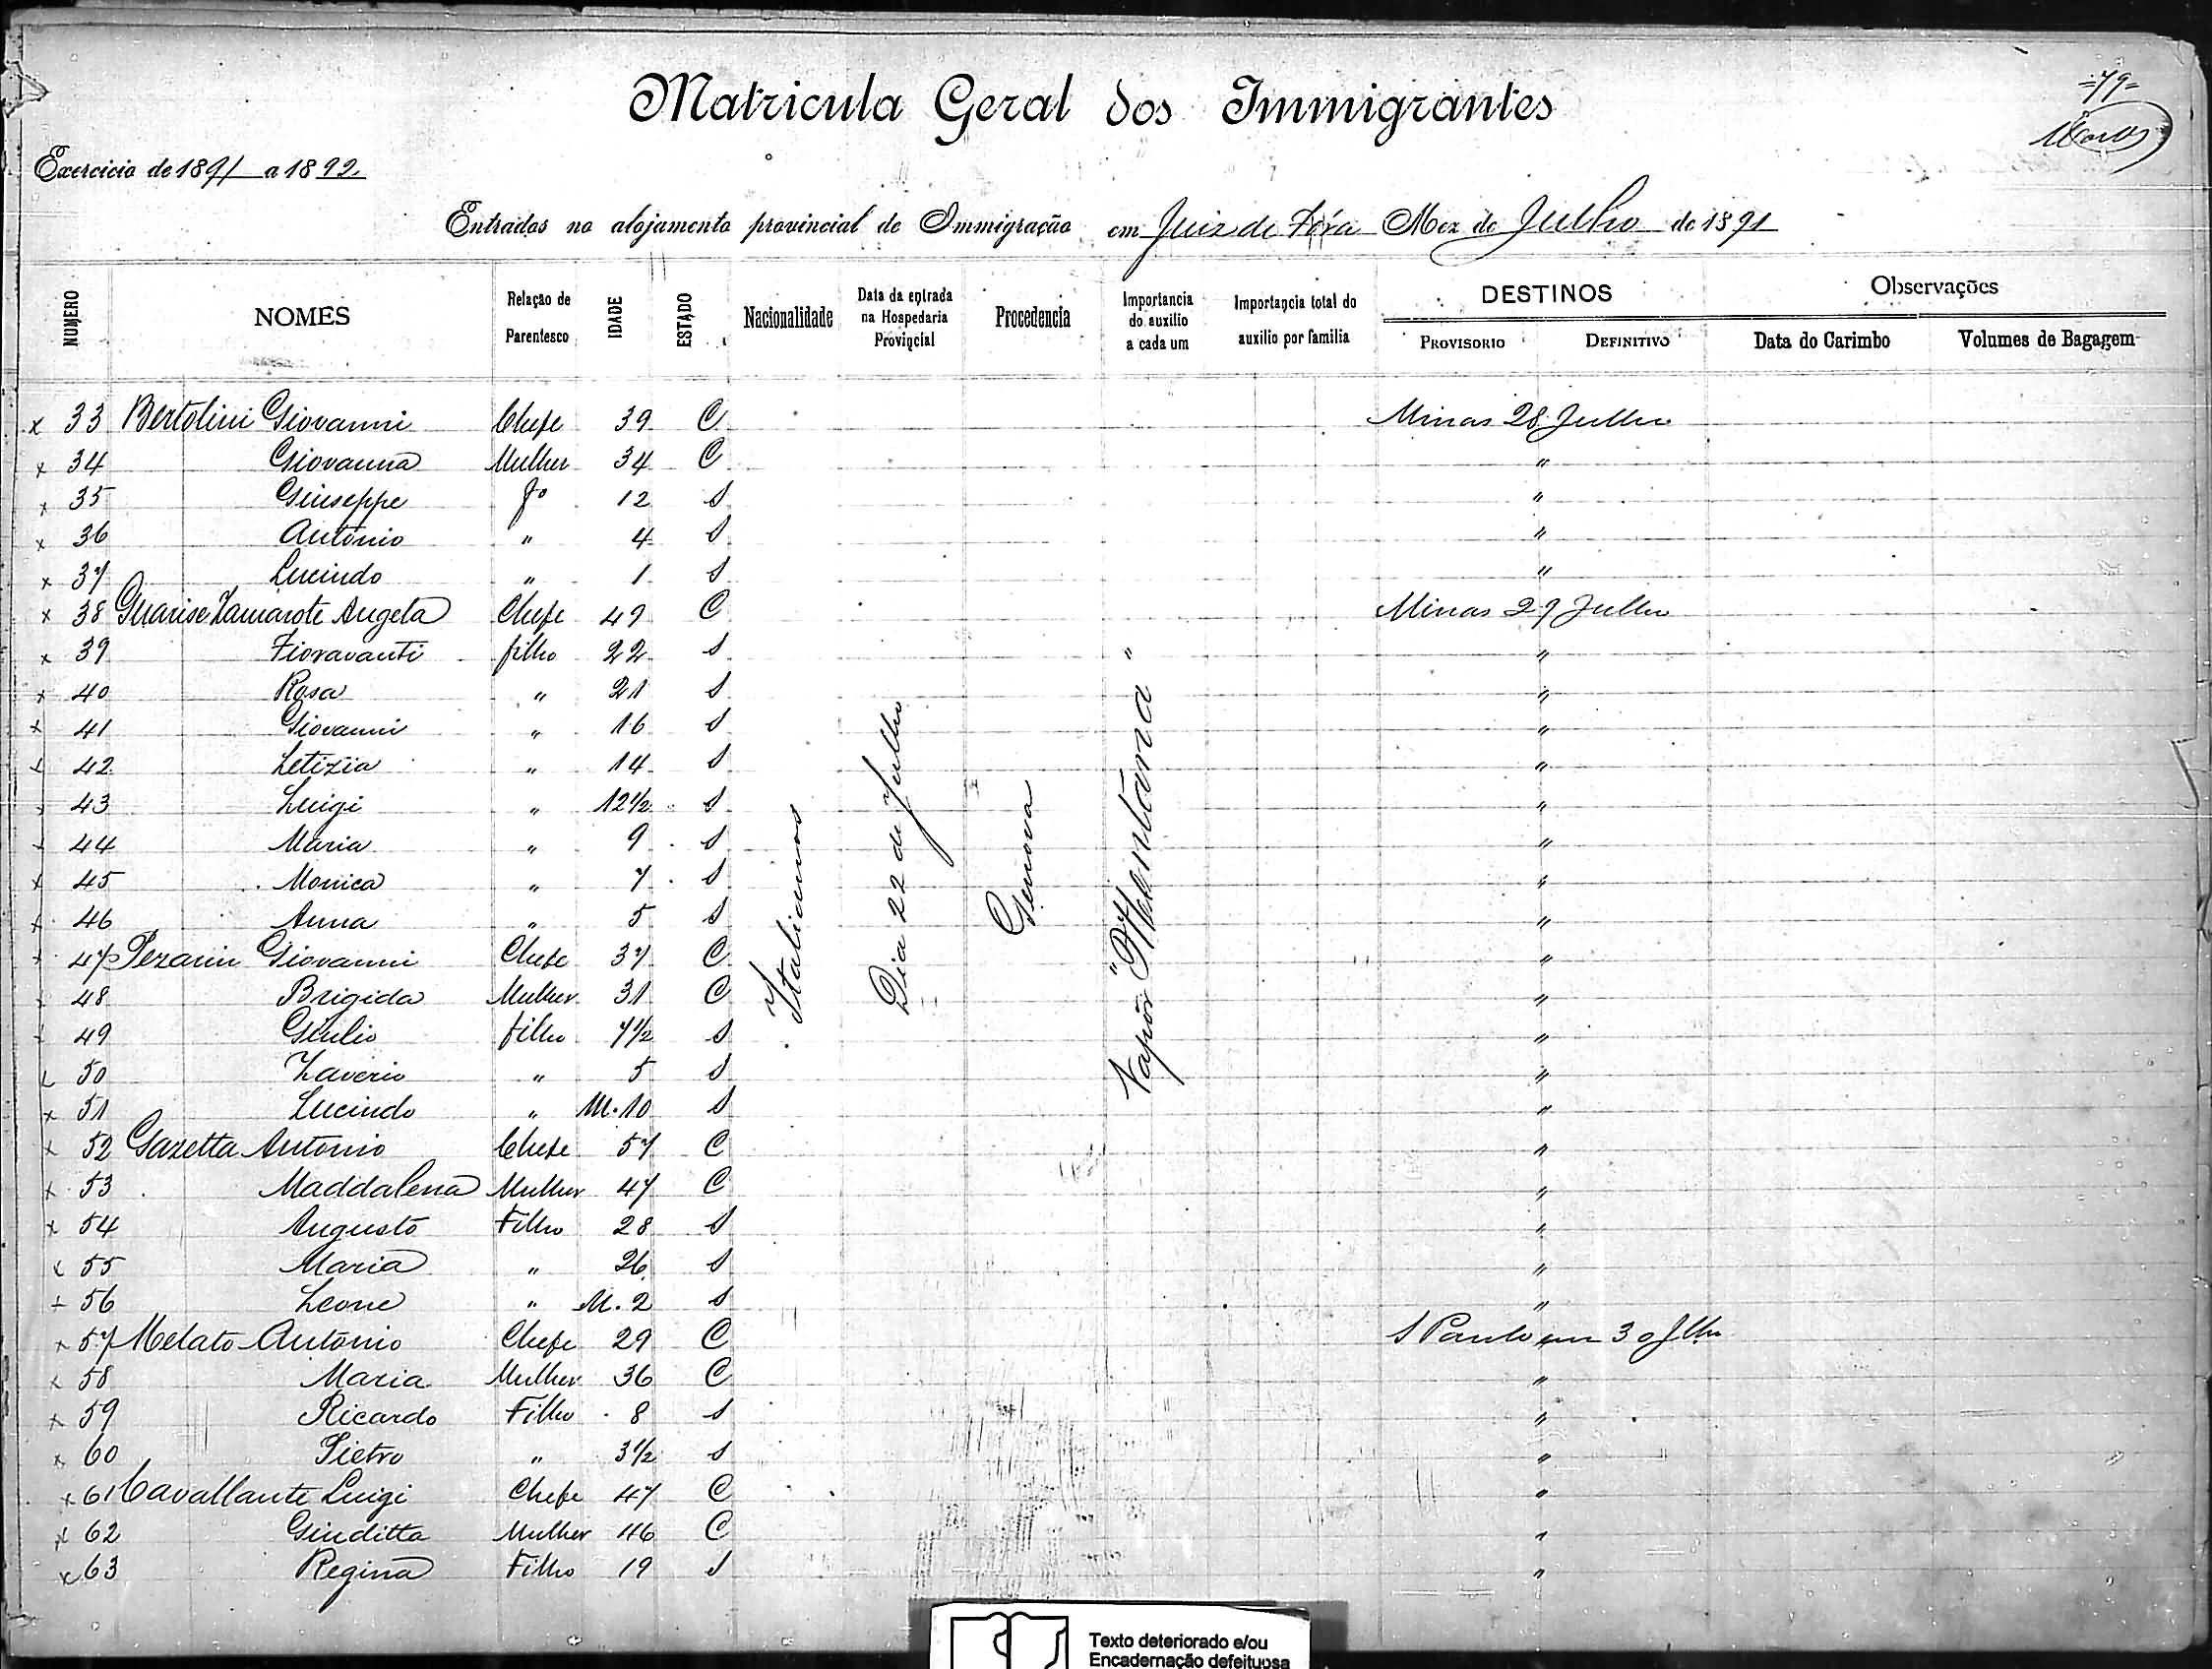 -79-
Matricula Geral dos Immigrantes
Exercicio de 1891 a 1892
Entrados no alojamento provincial de Immigração em Juiz de Fóra Mez de Julho de 1891
NUMERO NOMES Relação de Parentesco IDADE ESTADO Nacionalidade Data da entrada na Hospedaria Provincial Procedencia Importancia do auxilio a cada um Importancia total do auxilio por familia DESTINOS PROVISORIO DEFINITIVO Observações Data do Carimbo Volumes de Bagagem
x 33 Bertolini Giovanni Chefe 39 C Minas 28 Julho
x 34 Giovanna Mulher 34 C "
x 35 Giuseppe fo 12 S "
x 36 Antonio " 4 S "
x 37 Lucindo " 1 S "
x 38 Guarise Zamarote Angela Chefe 49 C Minas 29 Julho
x 39 Fioravanti filho 22 S "
x 40 Rosa " 21 S "
x 41 Giovanni " 16 S "
x 42 Letizia " 14 S "
x 43 Luigi " 12 1/2 S "
x 44 Maria " 9 S "
x 45 Monica " 7 S "
x 46 Anna " 5 S "
x 47 Pezarin Giovanni Chefe 37 C "
x 48 Brigida Mulher 31 C "
x 49 Giulio filho 7 1/2 S "
x 50 Zaverio " 5 S "
x 51 Lucindo " M. 10 S "
x 52 Gazetta Antonio Chefe 57 C "
x 53 Maddalena Mulher 47 C "
x 54 Augusto Filho 28 S "
x 55 Maria " 26 S "
x 56 Leone " M. 2 S "
x 57 Melato Antonio Chefe 29 C S Paulo em 30 Jlho
x 58 Maria Mulher 36 C "
x 59 Ricardo Filho 8 S "
x 60 Pietro " 3 1/2 S "
x 61 Cavallante Luigi Chefe 47 C "
x 62 Giuditta Mulher 46 C "
x 63 Regina Filho 19 S "
Italianos
Dia 22 de Julho
Genova
Vapor "Mentana"
Texto deteriorado e/ou
Encadernação defeituosa